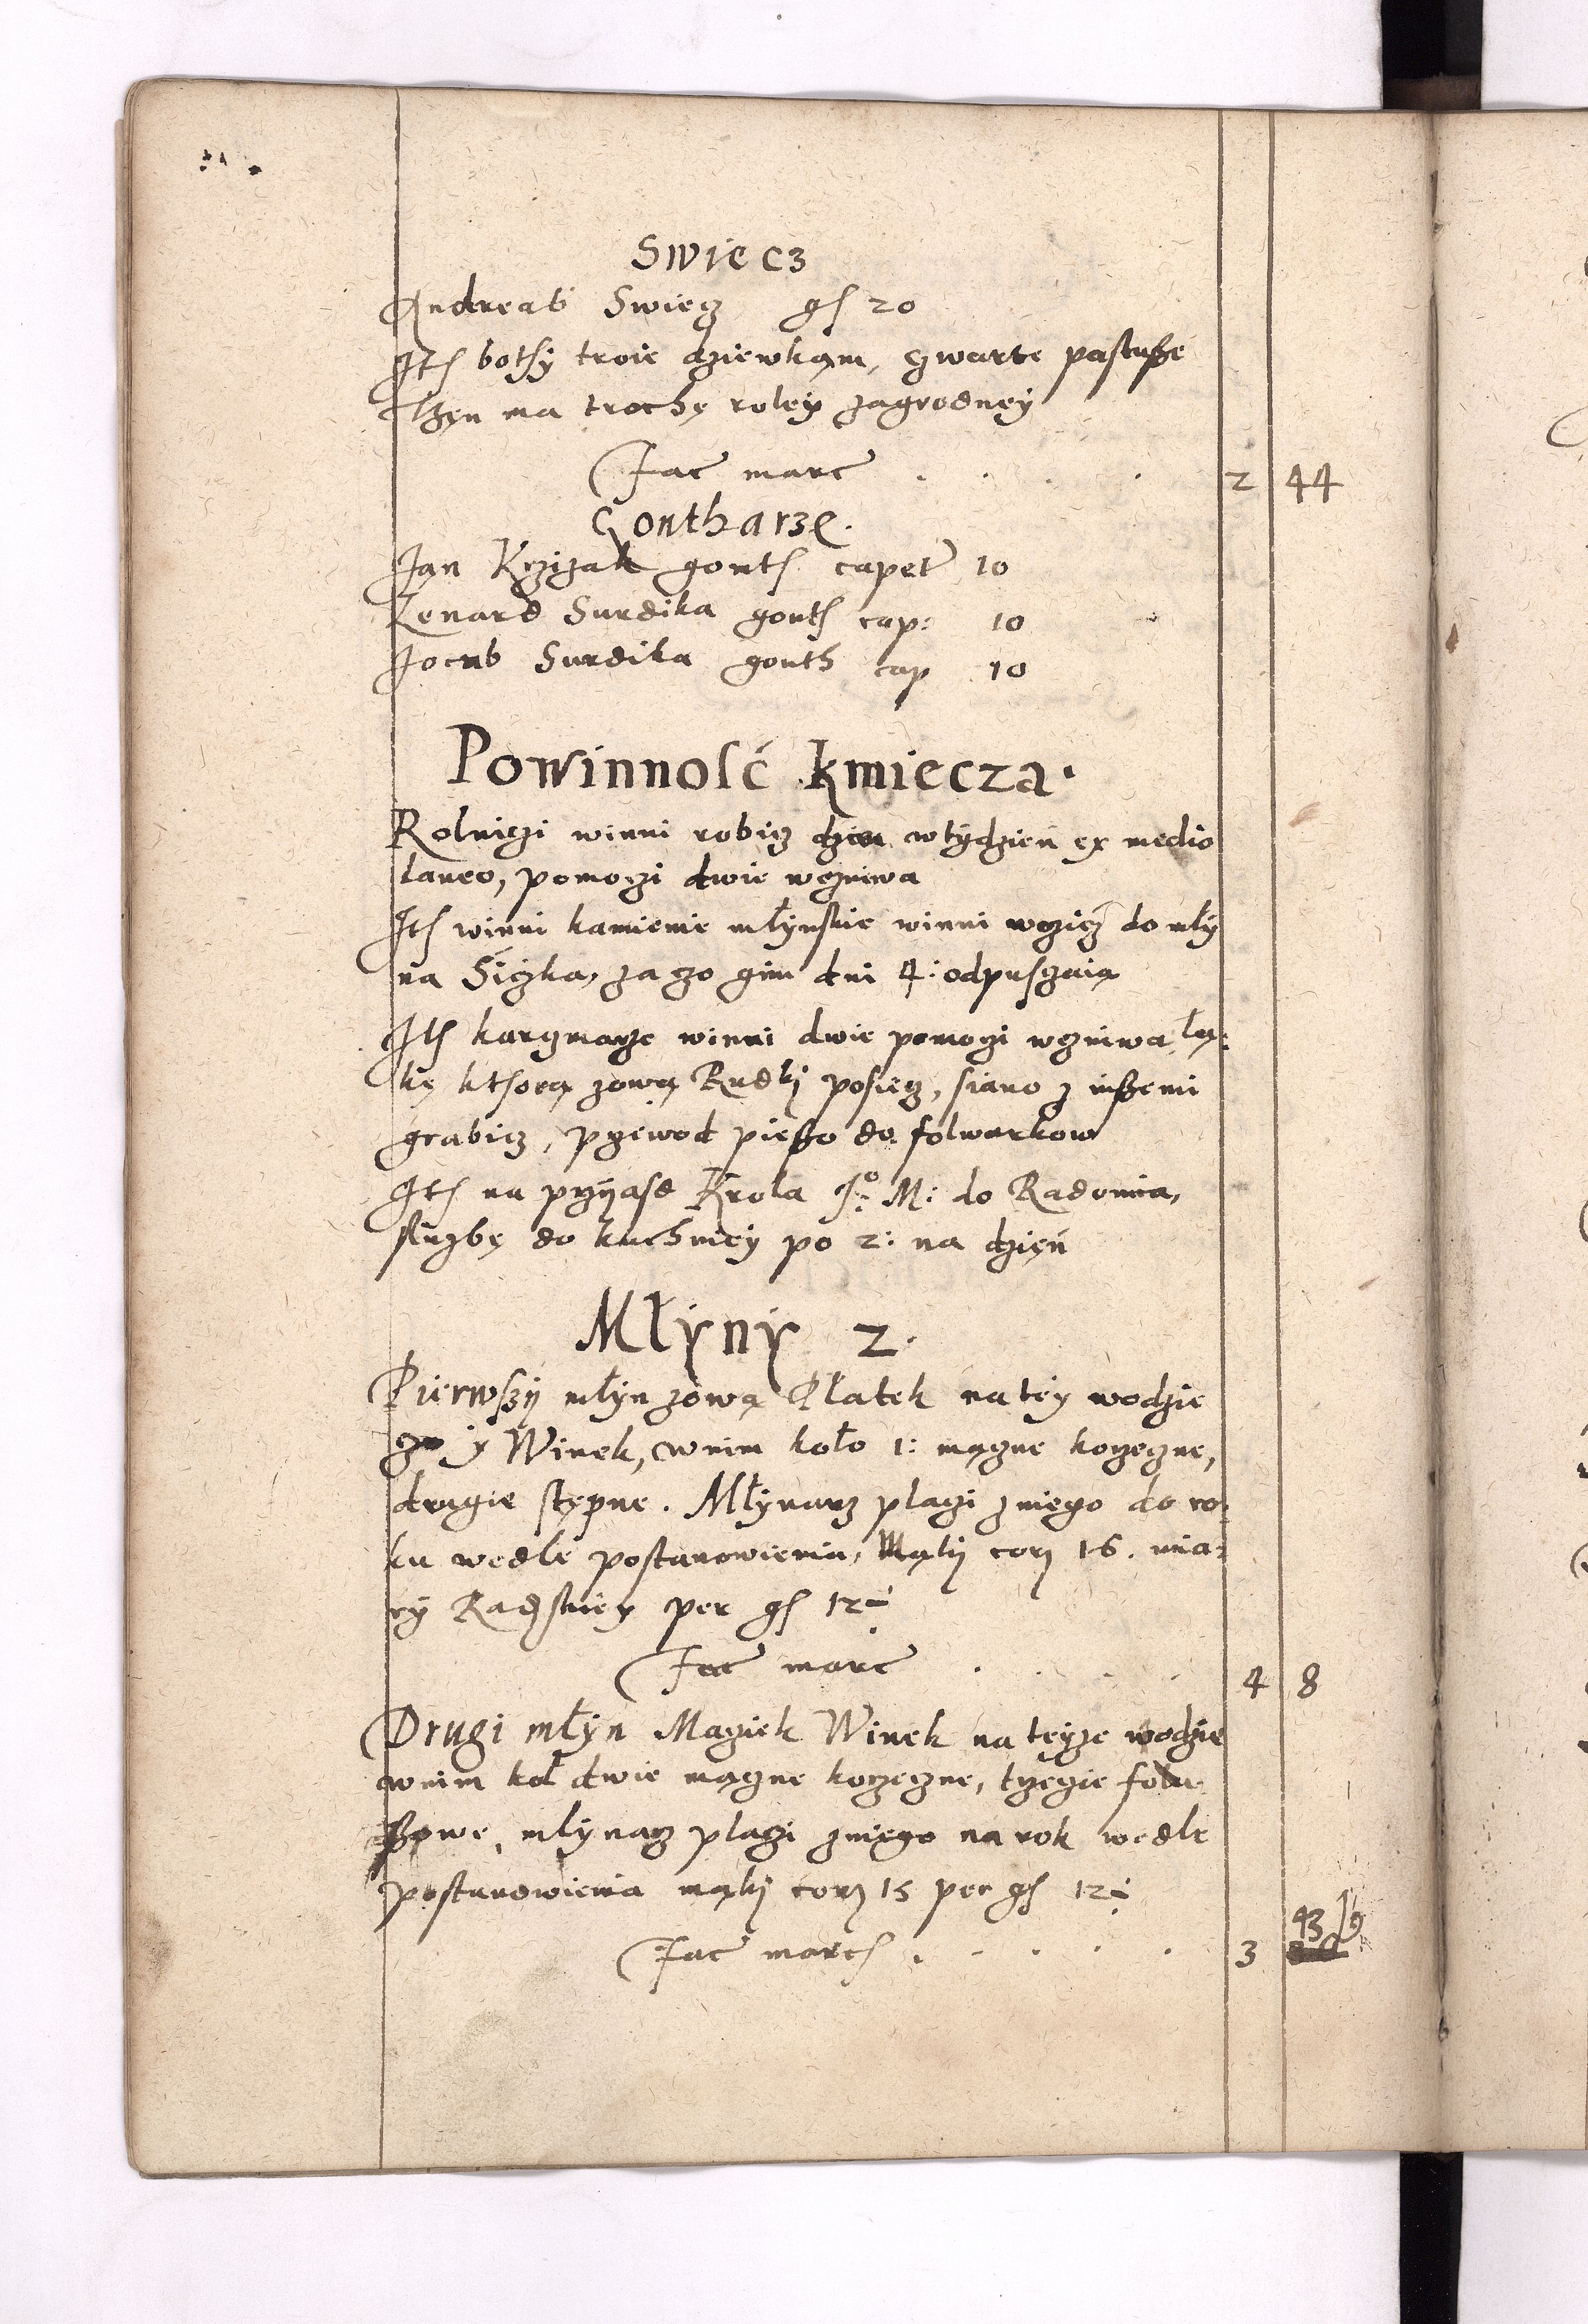 Swiecz
Andreas Swiecz gs 20
Its bothy troie dziewkąm, czwarte pastusze
Then ma trochę roley zagrodney
Fac marc . . . . 2 44
Gontharze.
Jan Krzizak gonth capet 10
Lenard Surdika gonth cap: 10
Jacub Surdika gonth cap 10
Powinność kmiecza.
Rolniczi winni robicz dzien wtydzień ex medio
laneo, pomoczi dwie wezniwa
Its winni kamienie młynskie winni wozicz do mły
na Siczka, za czo gim dni 4: odpusczaią
Its karczmarze winni dwie pomoczi wezniwa łą:
kę kthorą zową Rudki posiecz, siano z inszemi
grabicz, przewod pieszo do folwarkow
Its na przyasd Krola Jo: M: do Radomia,
służbę do kuchniey po 2: na dzień
Młyny 2.
Pierwszy młyn zową Płatek na tey wodzie
czo y Winek, wnim koło 1: mączne korzeczne,
drugie stępne. Młynarz płaczi zniego do ro:
ku wedle postanowienia, Mąky corz 16. mia:
ry Radskiey per gs 12
Fac marc . . . . 4 8
Drugi młyn Maciek Winek na teyze wodzie
wnim koł dwie mączne korzeczne, trzecie folu
szowe, młynarz płaczi zniego na rok wedle
postanowienia mąki corz 15 per gs 12
Fac marcs . . . . . 3 43